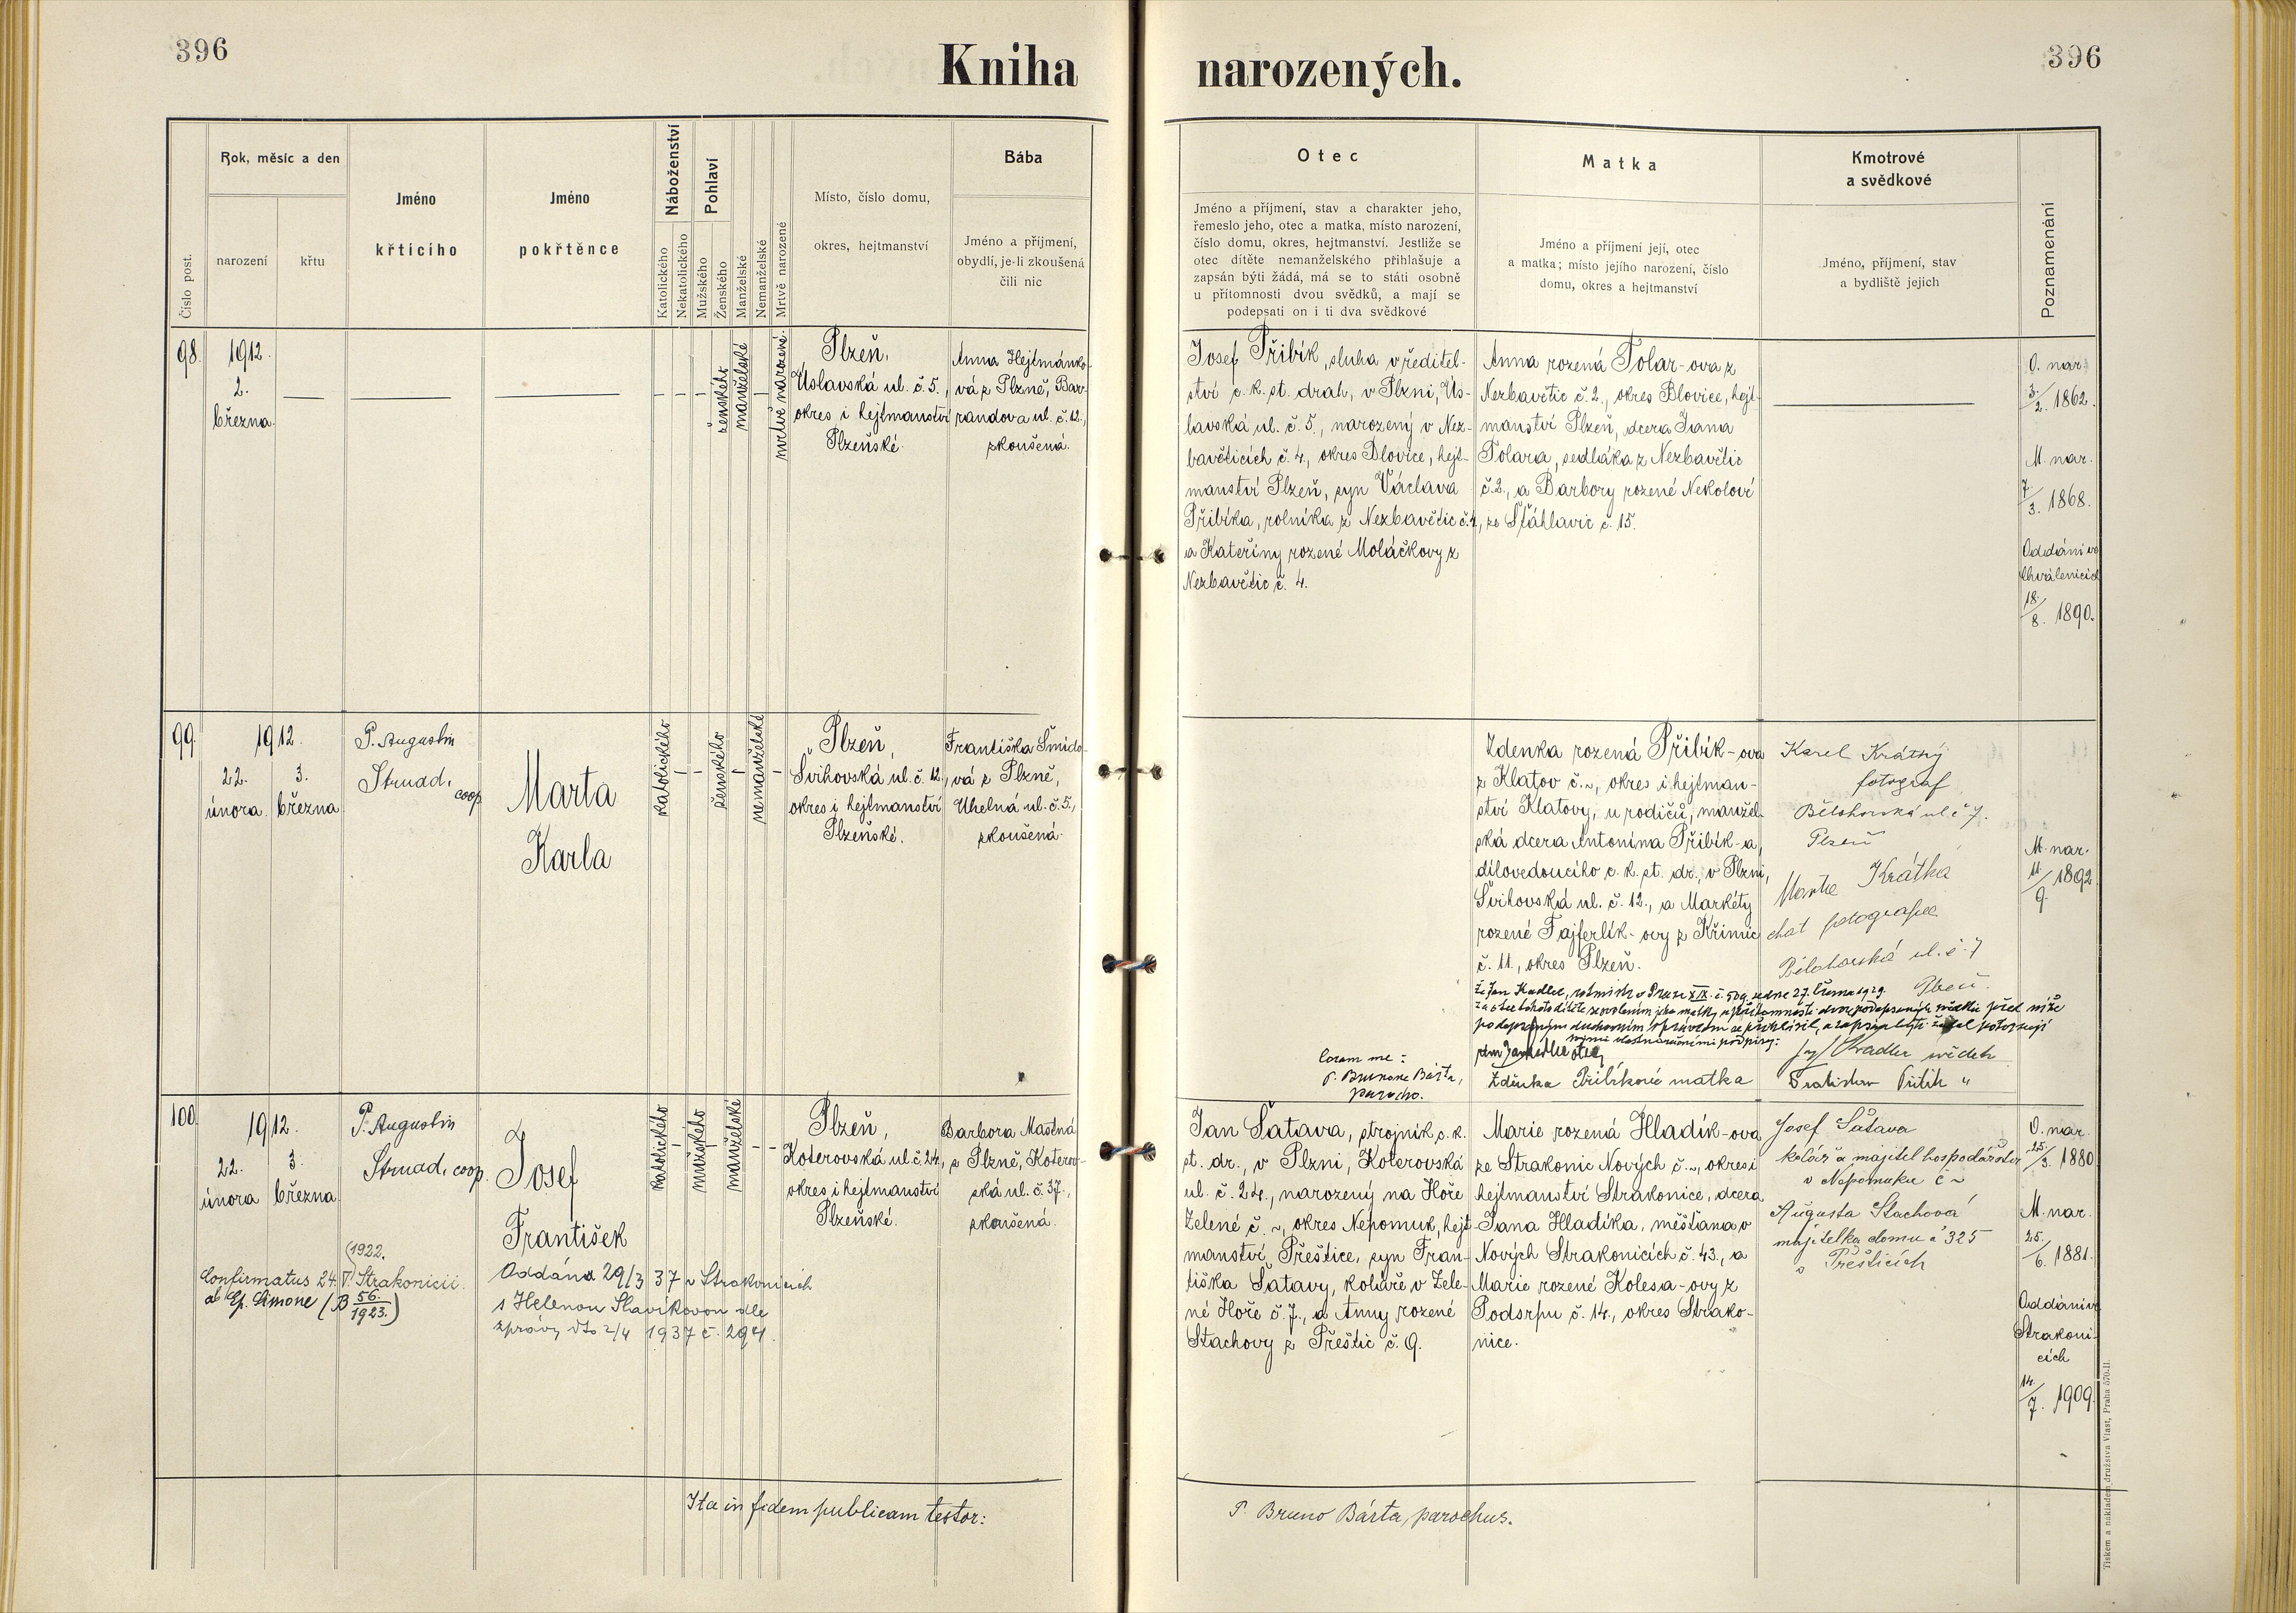 396
Kniha narozených.
396
Číslo post.
Rok, měsíc a den
narození
křtu
Jméno
křticího
Jméno
pokřtěnce
Náboženství
Katolického
Nekatolického
Pohlaví
Mužského
Ženského
Manželské
Nemanželské
Mrtvě narozené
Místo, číslo domu,
okres, hejtmanství
Bába
Jméno a příjmení,
obydlí, je-li zkoušená
čili nic
Otec
Jméno a příjmení, stav a charakter jeho,
řemeslo jeho, otec a matka, místo narození,
číslo domu, okres, hejtmanství. Jestliže se
otec dítěte nemanželského přihlašuje a
zapsán býti žádá, má se to státi osobně
u přítomnosti dvou svědků, a mají se
podepsati on i ti dva svědkové
Matka
Jméno a příjmení její, otec
a matka; místo jejího narození, číslo
domu, okres a hejtmanství
Kmotrové
a svědkové
Jméno, příjmení, stav
a bydliště jejich
Poznamenání
98.
1912.
2.
března.
ženského
manželské
mrtvě narozené.
Plzeň,
Úslavská ul. č. 5.,
okres i hejtmanství
Plzeňské.
Anna Hejtmánko-
vá z Plzně, Bar-
randova ul. č. 12.,
zkoušená.
Josef Přibík, sluha v ředitel-
ství c. k. st. drah, v Plzni, Ús-
lavská ul. č. 5., narozený v Nez-
bavěticích č. 4., okres Blovice, hejt-
manství Plzeň, syn Václava
Přibíka, rolníka z Nezbavětic č. 4.,
a Kateřiny rozené Moláčkovy z
Nezbavětic č. 4.
Anna rozená Tolar-ova z
Nezbavětic č. 2., okres Blovice, hejt-
manství Plzeň, dcera Jana
Tolara, sedláka z Nezbavětic
č. 2., a Barbory rozené Nekolově
ze Šťáhlavic č. 15.
O. nar.
3./2. 1862.
M. nar.
7./3. 1868.
Oddáni ve
Chválenicích
18./8. 1890.
99.
1912.
22.
února
3.
března
P. Augustin
Strnad,
coop.
Marta
Karla
katolického
ženského
nemanželské
Plzeň,
Švihovská ul. č. 12.,
okres i hejtmanství
Plzeňské.
Františka Šmido-
vá z Plzně,
Uhelná ul. č. 5.,
zkoušená.
Zdenka rozená Přibík-ova
z Klatov č. ~, okres i hejtman-
ství Klatovy, u rodičů, manžel-
ská dcera Antonína Přibík-a,
dílovedoucího c. k. st. dr., v Plzni,
Švihovská ul. č. 12., a Markéty
rozené Fajferlík-ovy z Křimic
č. 11., okres Plzeň.
Karel Krátký
fotograf
Bělohorská ul č 7.
Plzeň
Krátká
choť fotografa
Bělohorská ul. č. 7
Plzeň.
M. nar.
11./9. 1892.
Že Jan Kadlec, v Praze XIX. č. 509, ze dne 27. června 1929.
za otce tohoto dítěte se svolením jeho matky v přítomnosti dvou podepsaných svědků před níže
podepsaným duchovním správcem se přihlásil, a zapsán býti žádal potvrzují
svými vlastnoručními podpisy:
otec,
Coram me:
P. Brunone Bárta,
parocho.
Zdenka Přibíková matka
Kadlec svědek
Přibík "
100.
1912.
22.
února
3.
března
P. Augustin
Strnad, coop.
Josef
František
katolického
mužského
manželské
Plzeň,
Koterovská ul. č. 24.,
okres i hejtmanství
Plzeňské.
Barbora Mastná
z Plzně, Koterov-
ská ul. č. 37.,
zkoušená.
Jan Šatava, strojník c. k.
st. dr., v Plzni, Koterovská
ul. č. 24., narozený na Hoře
Zelené č. ~, okres Nepomuk, hejt-
manství Přeštice, syn Fran-
tiška Šatavy, koláře v Zele-
né Hoře č. 7., a Anny rozené
Stachovy z Přeštic č. 9.
Marie rozená Hladík-ova
ze Strakonic Nových č. ~, okres i
hejtmanství Strakonice, dcera
Jana Hladíka, měšťana v
Nových Strakonicích č. 43., a
Marie rozené Kolesa-ovy z
Podsrpu č. 14., okres Strako-
nice.
Josef Šatava
kolář a majitel hospodářství
v Nepomuku č ~
Augusta Stachová
majitelka domu č 325
v Přešticích
O. nar.
25./3. 1880.
M. nar.
25./6. 1881.
Oddáni ve
Strakoni-
cích
14./7. 1909.
(1922.
Confirmatus 24. V. Strakonicii.
ab Ep. Simone (B 56./1923.)
Oddán 29/3 37 v Strakonicích
s Helenou Slavíkovou dle
zprávy dto 2/4 1937 č. 294.
Ita in fidem publicam testor:
P. Bruno Bárta, parochus.
Tiskem a nákladem družstva Vlast, Praha 570-II.